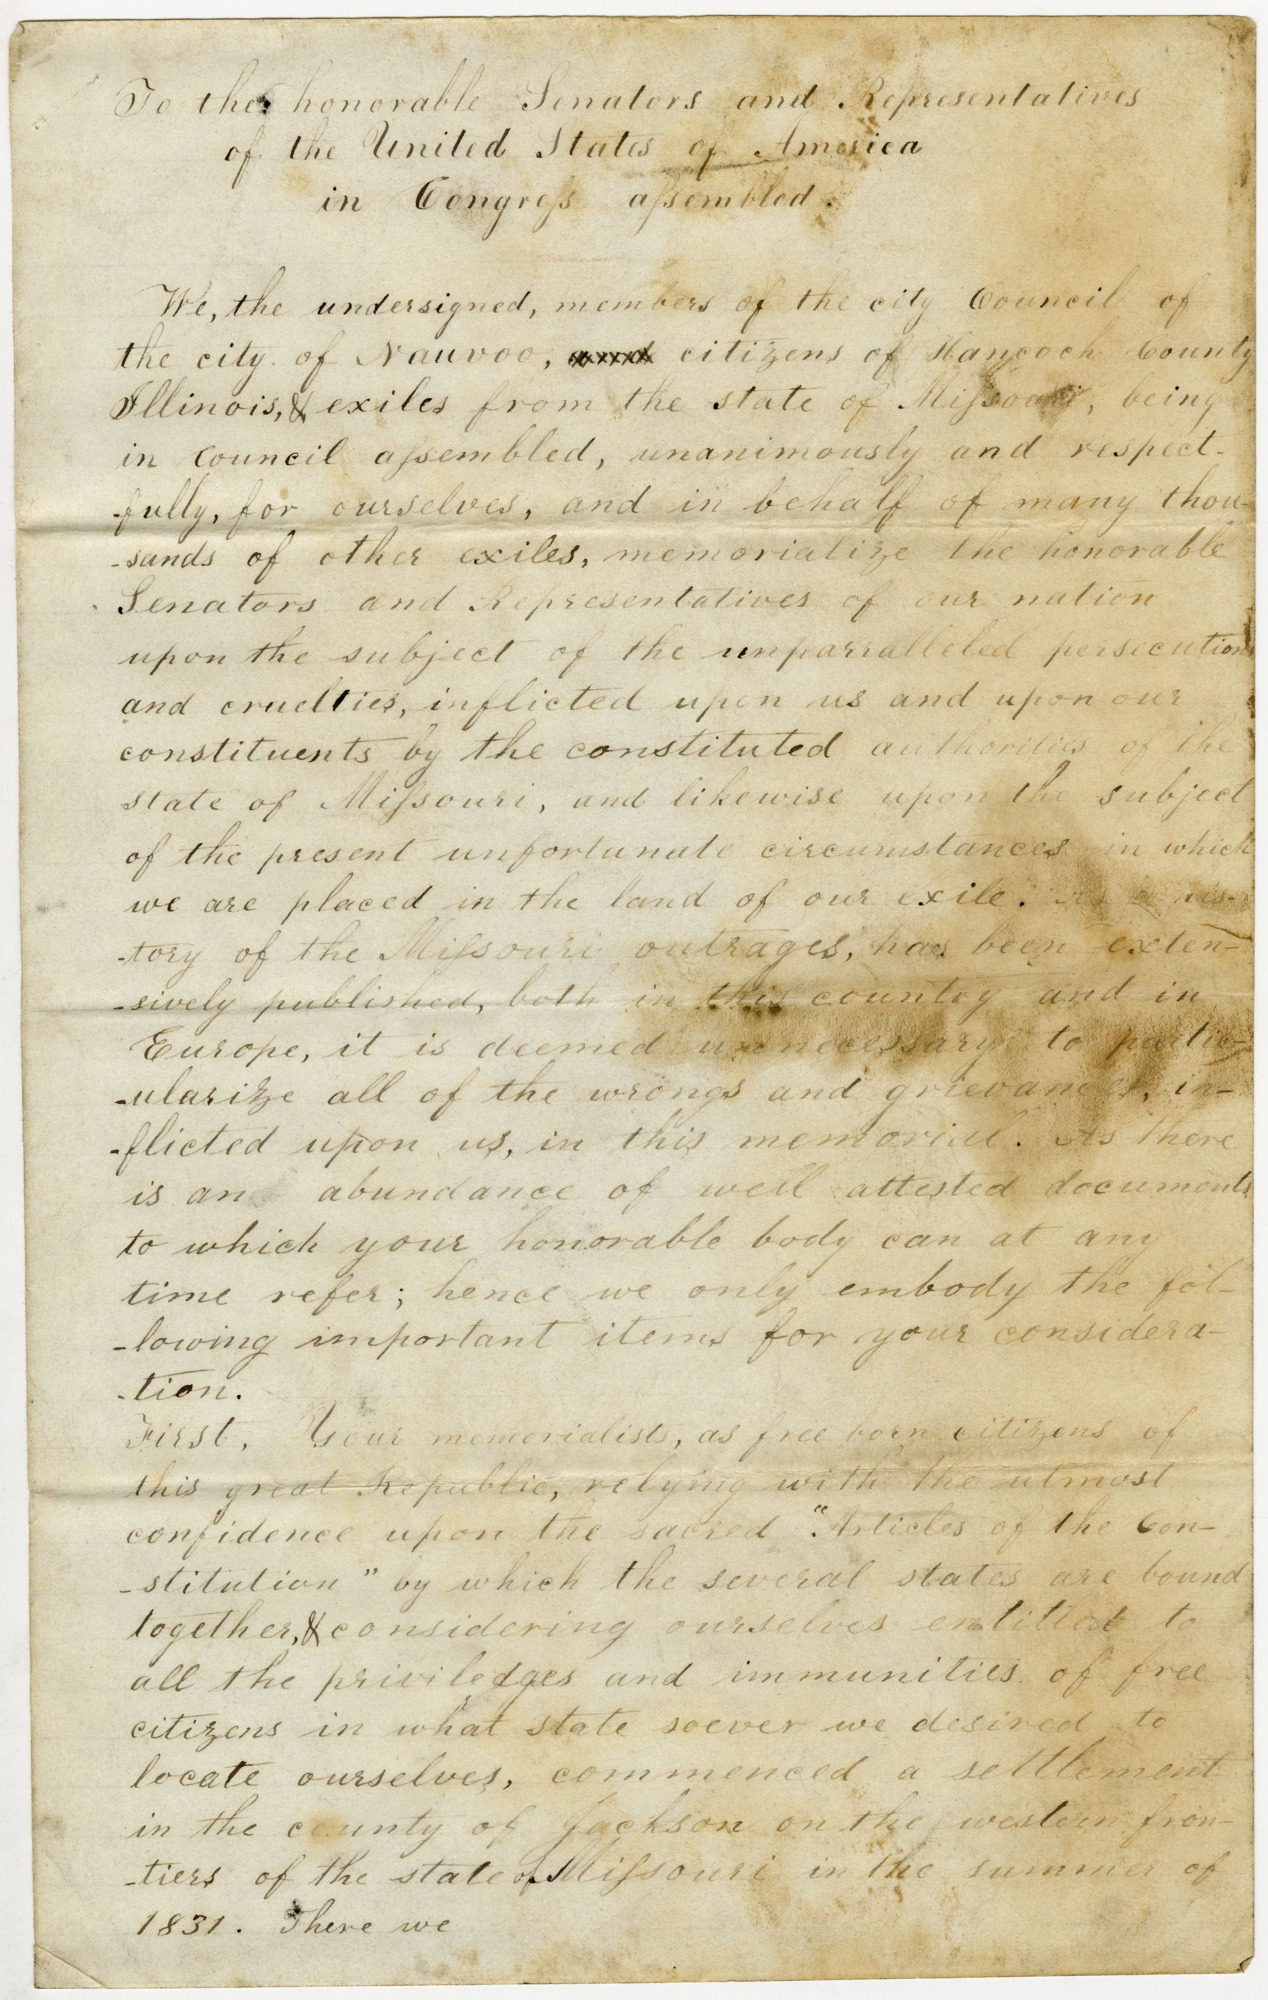 To the honorable Senators and Representatives
of the United States of America
in Congress assembled.
We, the undersigned, members of the city Council of
the city of Nauvoo, and citizens of Hancock County
Illinois, & exiles from the state of Missouri, being
in Council assembled, unanimously and respect-
-fully, for ourselves, and in behalf of many thou-
-sands of other exiles, memorialize the honorable
Senators and Representatives of our nation
upon the subject of the unparralleled persecutions
and cruelties, inflicted upon us and upon our
constituents by the constituted authorities of the
state of Missouri, and likewise upon the subject
of the present unfortunate circumstances in which
we are placed in the land of our exile. As a his-
-tory of the Missouri outrages, has been exten-
-sively published, both in this country and in
Europe, it is deemed unnecessary to partic-
-ularize all of the wrongs and grievances, in-
-flicted upon us, in this memorial. As there
is an abundance of well attested documents
to which your honorable body can at any
time refer; hence we only embody the fol-
-lowing important items for your considera-
-tion.
First. Your memorialists, as free born citizens of
this great Republic, relying with the utmost
confidence upon the sacred "Articles of the Con-
-stitution" by which the several states are bound
together, & considering ourselves entitled to
all the priviledges and immunities of free
citizens in what state soever we desired to
locate ourselves, commenced a settlement
in the county of Jackson on the western fron-
-tiers of the state of Missouri in the summer of
1831. There we